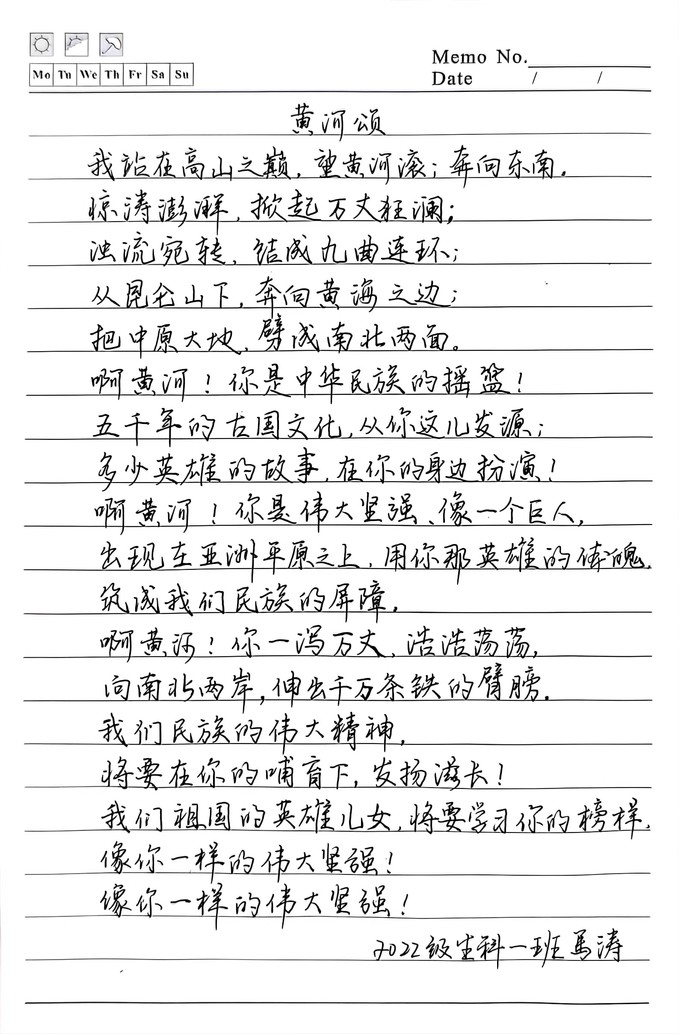 Memo No.
Mo Tu We Th Fr Sa Su
Date / /
黄河颂
我站在高山之巅，望黄河滚；奔向东南。
惊涛澎湃，掀起万丈狂澜；
浊流宛转，结成九曲连环；
从昆仑山下，奔向黄海之边；
把中原大地，劈成南北两面。
啊黄河！你是中华民族的摇篮！
五千年的古国文化，从你这儿发源；
多少英雄的故事，在你的身边扮演！
啊黄河！你是伟大坚强、像一个巨人，
出现在亚洲平原之上，用你那英雄的体魄，
筑成我们民族的屏障。
啊黄河！你一泻万丈，浩浩荡荡，
向南北两岸，伸出千万条铁的臂膀。
我们民族的伟大精神，
将要在你的哺育下，发扬滋长！
我们祖国的英雄儿女，将要学习你的榜样，
像你一样的伟大坚强！
像你一样的伟大坚强！
2022级生科一班马涛